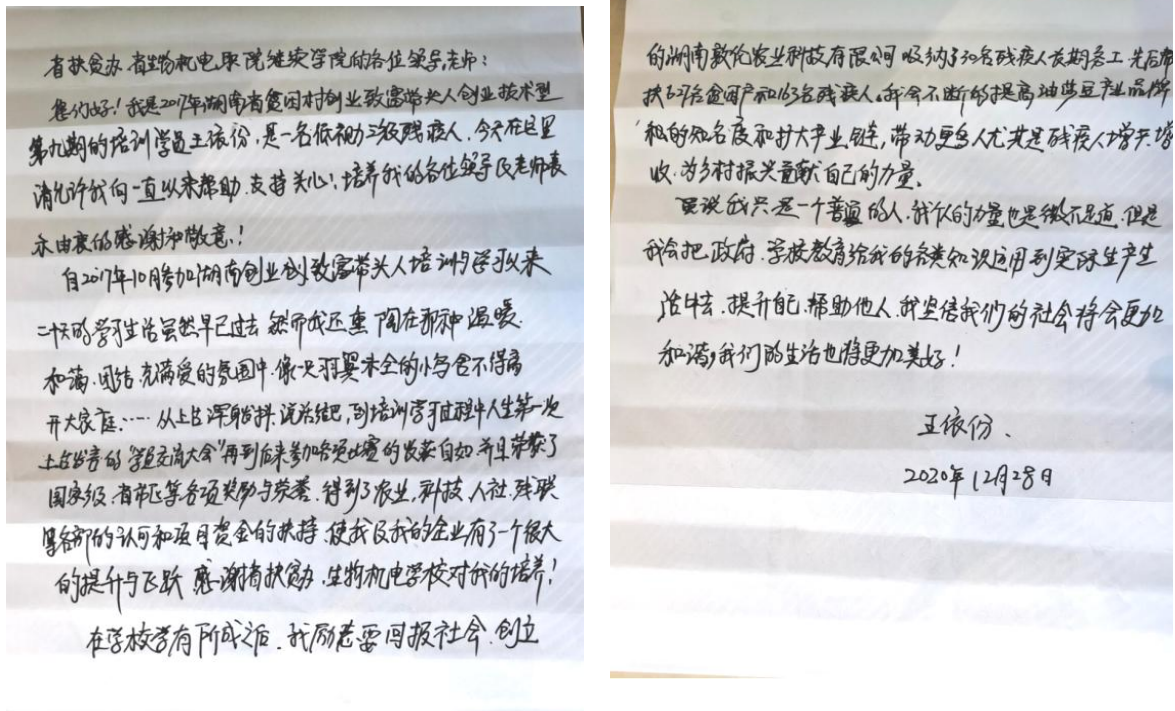 省扶贫办、省生物机电职院继续学院的各位领导、老师：
您们好！我是2017年湖南省贫困村创业致富带头人创业技术型
第九期的培训学员王依份，是一名低视力三级残疾人，今天在这里
请允许我向一直以来帮助、支持关心、培养我的各位领导及老师表
示由衷的感谢和敬意！
自2017年10月参加湖南创业创致富带头人培训与学习以来
二十天的学习生活虽然早已过去 然而我还重 陶在那种温暖、
和蔼、团结、充满爱的氛围中，像一只羽翼未全的小鸟舍不得离
开大家庭……从上台浑身发抖、说话结巴，到培训学习过程中人生第一次
上台发言的“学员交流大会”再到后来参加各项比赛的发挥自如 并且荣获了
国家级、省市区等各项奖励与荣誉，得到了农业，科技，人社，残联
等各部的认可和项目资金的扶持，使我及我的企业有了一个很大
的提升与飞跃 感谢省扶贫办、生物机电学校对我的培养！
在学校学有所成之后，我励志要回报社会、创立
的湖南敦伦农业科技有限公司 吸纳了30名残疾人长期务工 先后帮
扶627名贫困户和163名残疾人。我会不断的提高油莎豆产业品牌
和的知名度和扩大产业链，带动更多人尤其是残疾人增产增
收，为乡村振兴贡献自己的力量。
虽说我只是一个普通的人，我似的力量也是微不足道，但是
我会把政府、学校教育给我的各类知识运用到实际生产生
活中去，提升自己，帮助他人，我坚信我们的社会将会更加
和谐，我们的生活也将更加美好！
王依份、
2020年12月28日